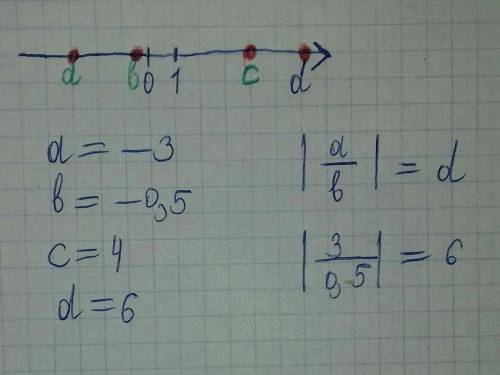 a b 0 1 c d
a = -3
b = -0,5
c = 4
d = 6
|a/b| = d
|3/0,5| = 6